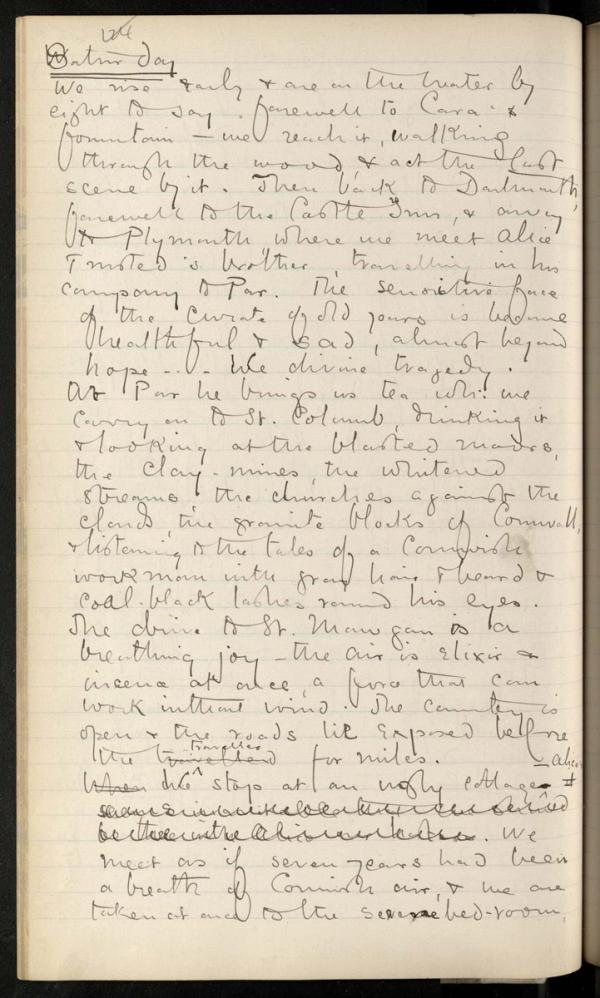 Saturday
We rise early & are on the water by
eight to say farewell to Cara &
fountain — we reach it, walking
through the wood, & act the last
scene by it. Then back to Dartmouth,
farewell to the Castle Inn, & away
to Plymouth, where we meet Alice
Trusted's brother, travelling in his
company to Par. The sensitive face
of the curate of old years is become
healthful & sad, almost beyond
hope - . . We divine tragedy.
At Par he brings us tea wh: we
carry on to St. Columb, drinking it
& looking at the blasted moors,
the clay-mines, the whitened
streams, the churches against the
clouds, the granite blocks of Cornwall,
& listening to the tales of a Cornish
workman with gray hair & beard &
coal-black lashes round his eyes.
The drive to St. Mawgan is a
breathing joy — the air is elixir &
incense at once, a force that can
work without wind. The country is
open & the roads lie exposed before
the traveller for miles.
We stop at an ugly cottage — Alice's
We
meet as if seven years had been
a breath of Cornish air, & we are
taken at once to the serene bed-room,